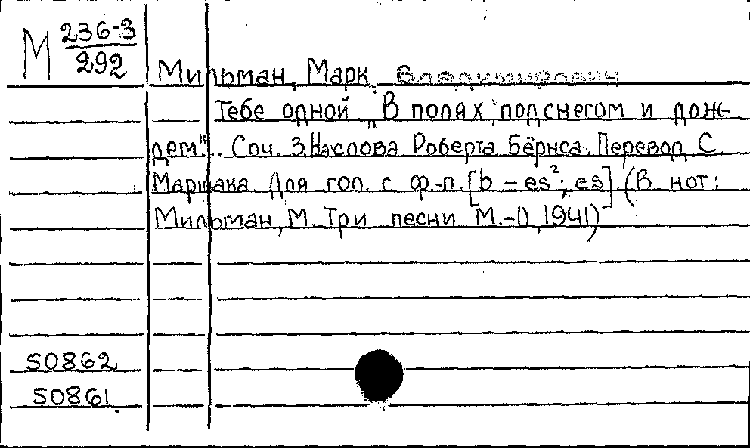 М 236-3
292
Мильман, Марк Владимирович
Тебе одной „В полях под снегом и дож-
дем". Соч. 3, Роберта Бёрнса. Перевод С.
Маршака. Для гол. с ф-п. [b – es²; es] (В нот:
Мильман, М. Три песни М.-Л, 1941)
50862
50861